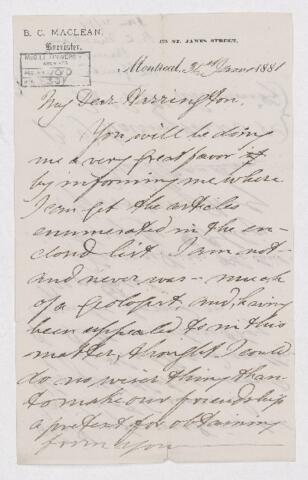 B. C. MACLEAN,
Barrister.
ST. JAMES STREET,
McGILL UNIVERSITY
ARCHIVES
ACC. NO.
Montreal, June 1881
My Dear Harrington,
You will be doing
me a very great favor if
by informing me where
I can get the articles
enumerated in the en-
closed list. I am not
and never was - much
of a Geologist, and, having
been appealed to in this
matter, thought I could
do no wiser thing than
to make our friendship
a pretext for obtaining
from you